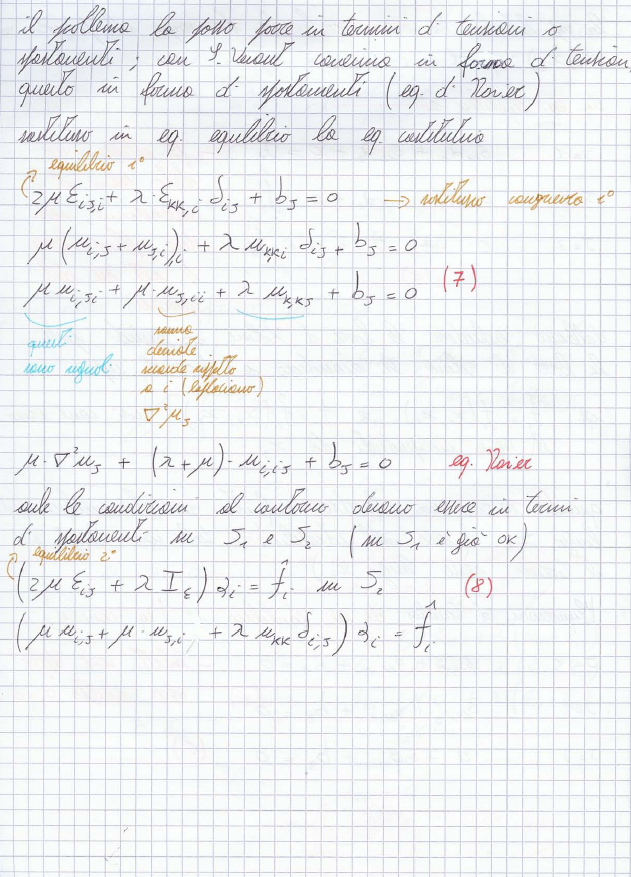 il problema lo posso porre in termini di tensioni o
spostamenti; con S. Venant conviene in forma di tensioni
questo in forma di spostamenti (eq. di Navier)
sostituisco in eq. equilibrio la eq. costitutiva
equilibrio 1°
2μ ε_{ij,i} + λ·ε_{kk,i} δ_{ij} + b_j = 0 → sostituisco congruenza 1°
μ (u_{i,j} + u_{j,i})_{,i} + λ u_{k,ki} δ_{ij} + b_j = 0
μ u_{i,ji} + μ·u_{j,ii} + λ u_{k,kj} + b_j = 0 (7)
questi
sono uguali
sanno
derivate
seconde rispetto
a i (laplaciano)
∇²u_j
μ·∇²u_j + (λ+μ)·u_{i,ij} + b_j = 0 eq. Navier
anche le condizioni al contorno devono essere in termini
di spostamenti su S_1 e S_2 (su S_1 è già OK)
equilibrio 2°
(2μ ε_{ij} + λ I_ε) α_i = f̂_i su S_2 (8)
(μ u_{i,j} + μ·u_{j,i} + λ u_{kk} δ_{i,j}) α_i = f̂_i